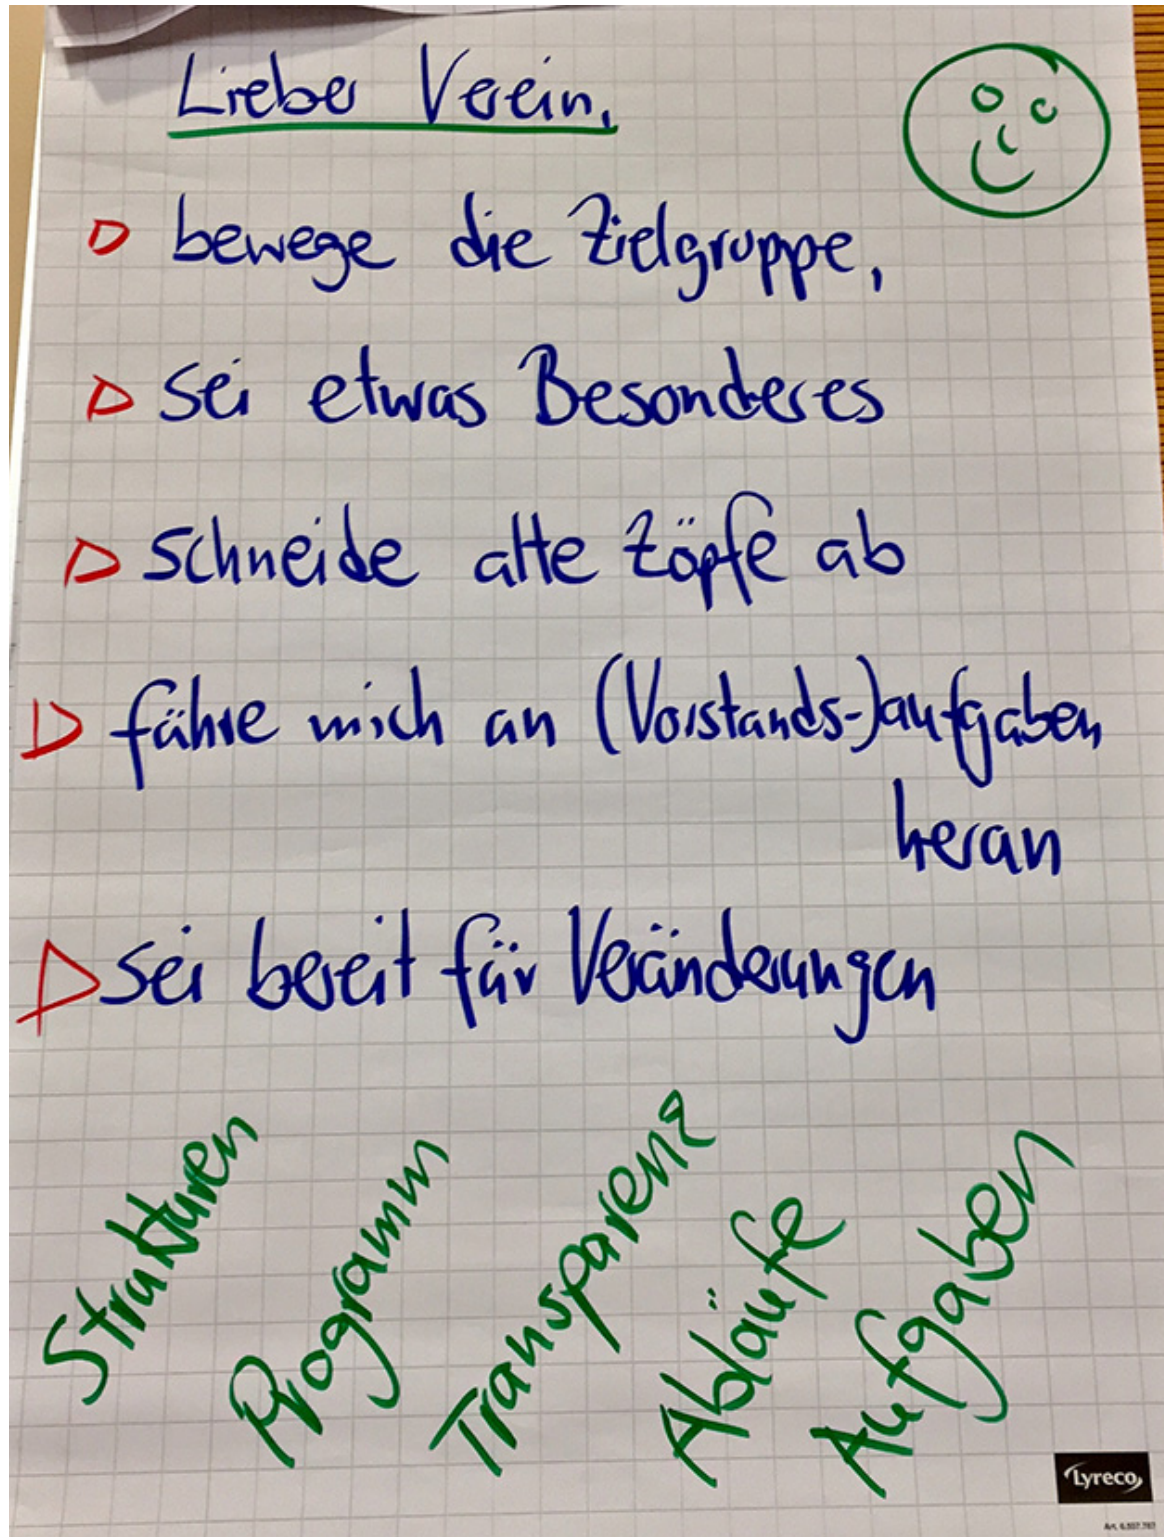 Lieber Verein,
bewege die Zielgruppe,
sei etwas Besonderes
schneide alte Zöpfe ab
führe mich an (Vorstands-)aufgaben
heran
sei bereit für Veränderungen
Strukturen
Programm
Transparenz
Abläufe
Aufgaben
Lyreco